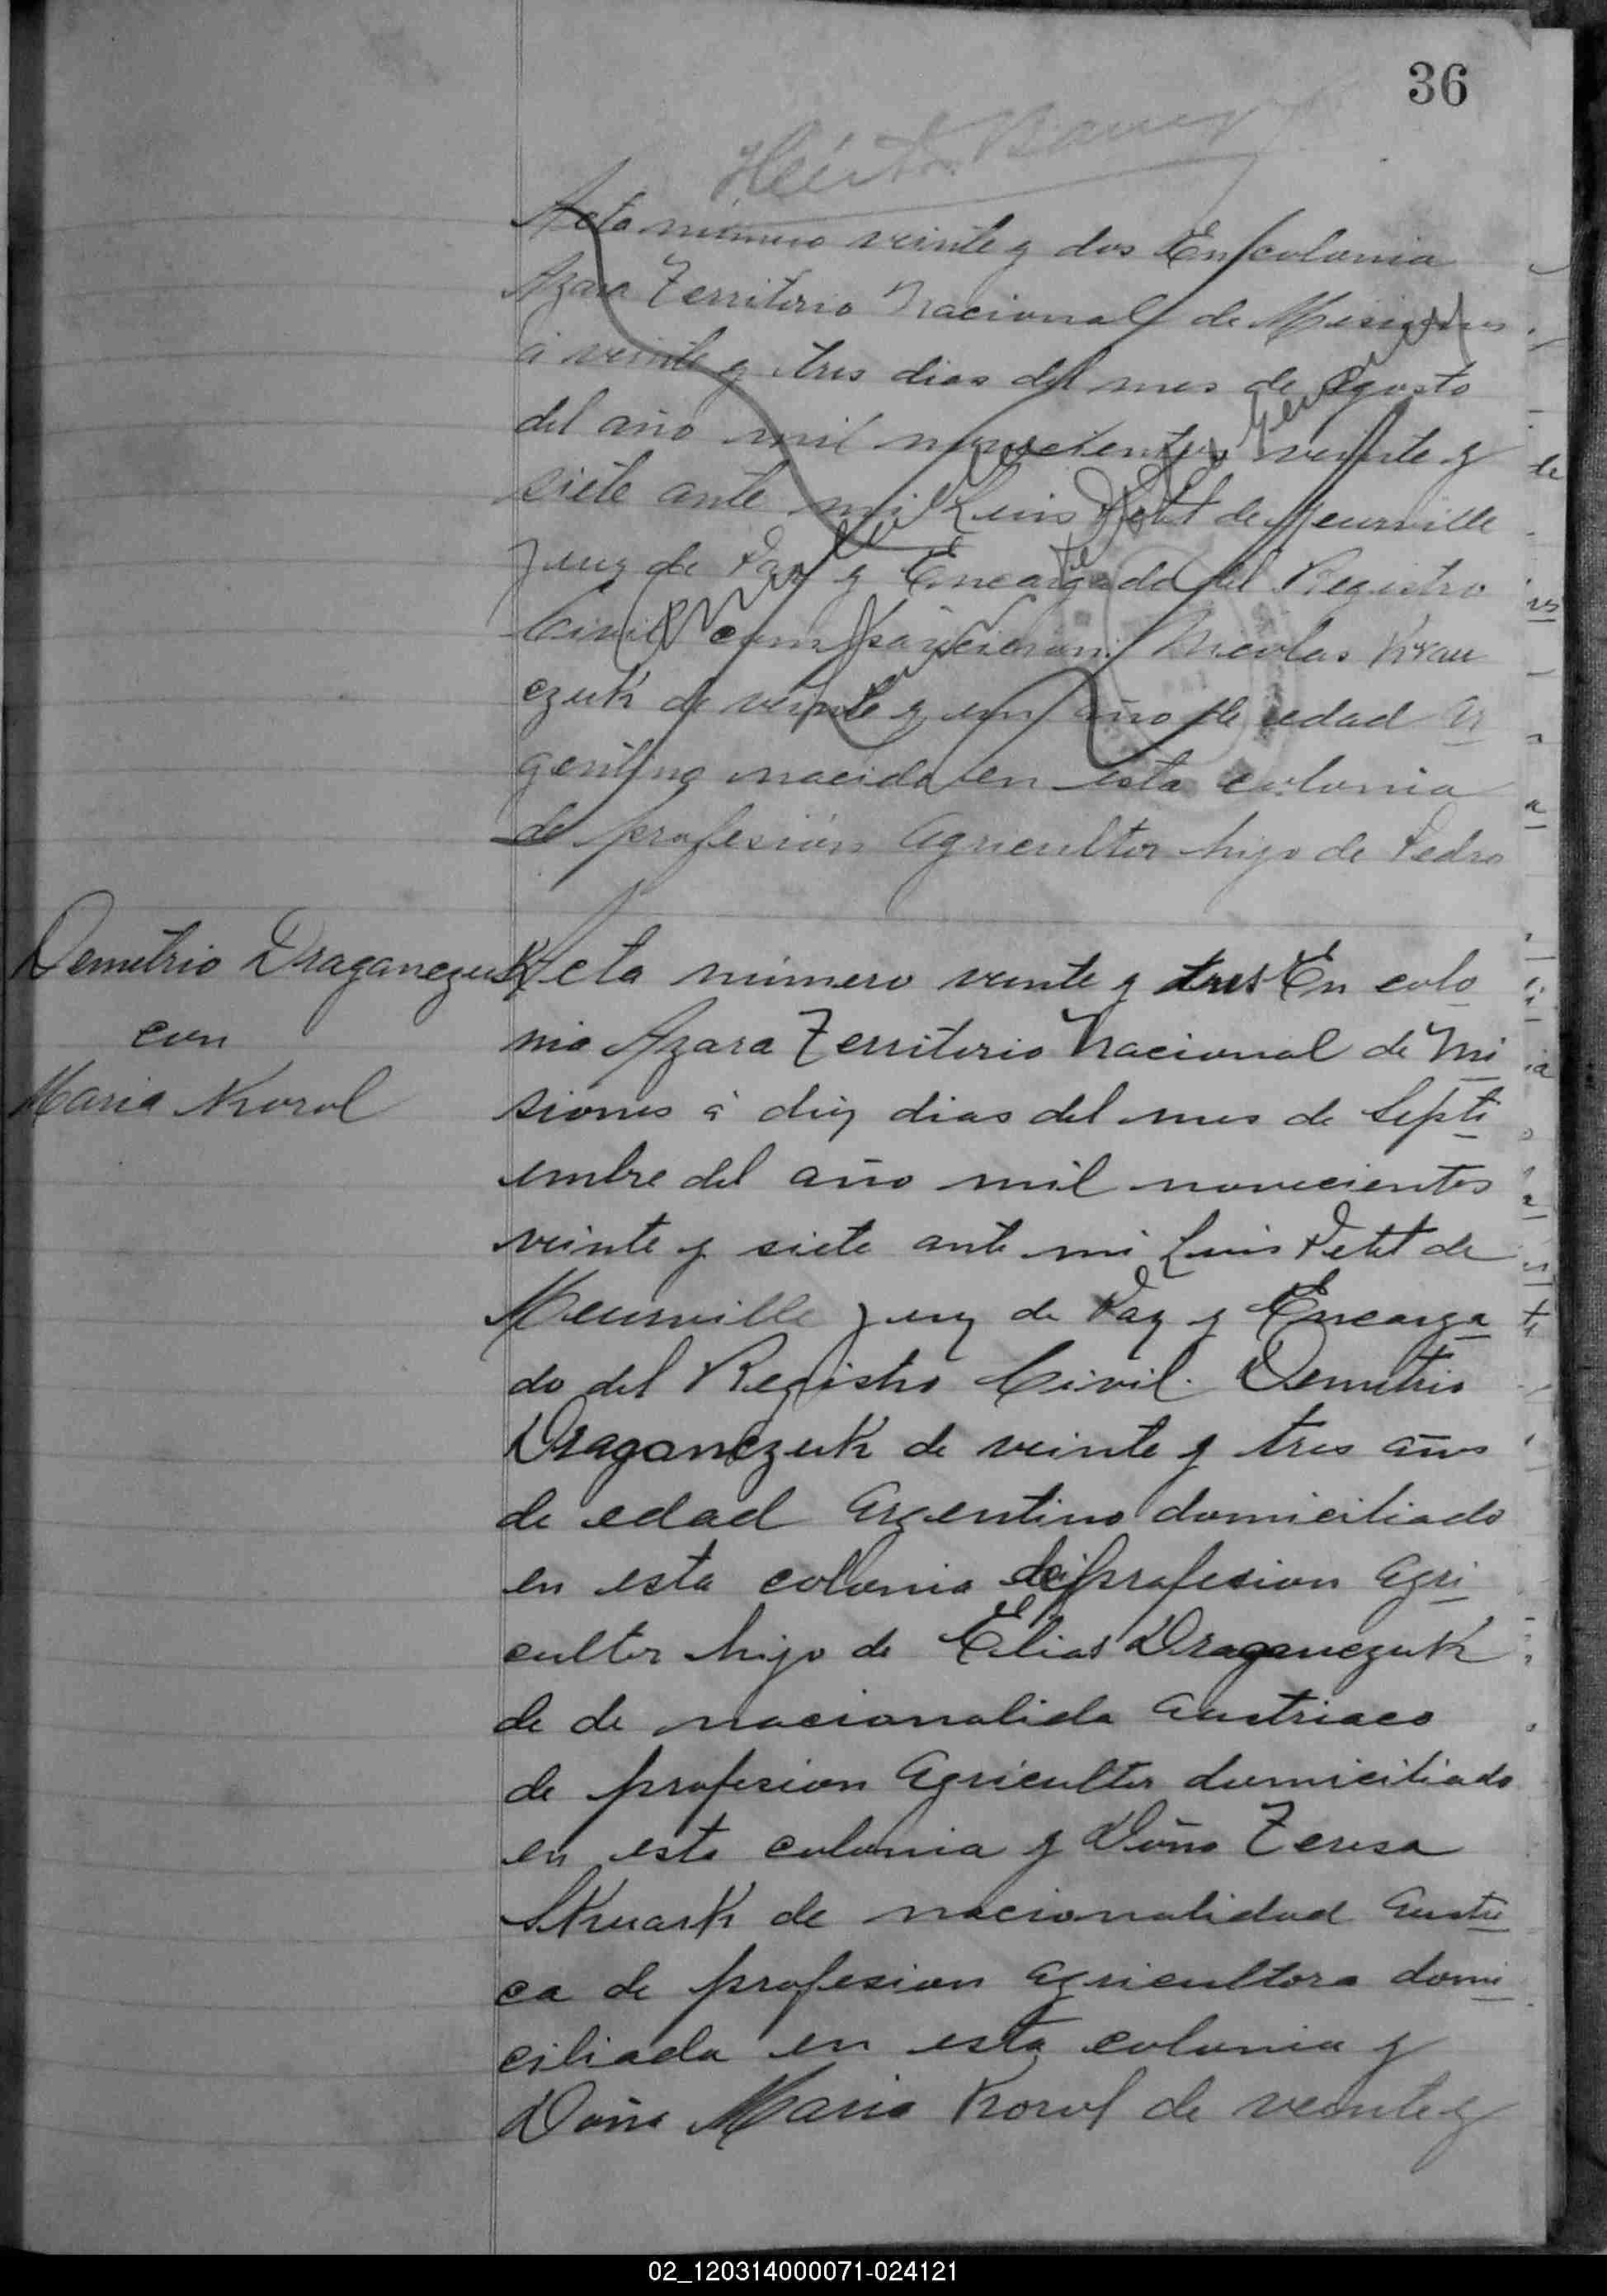 36
Acta número veinte y dos En colonia
Azara Territorio Nacional de Misiones
á veinte y tres dias del mes de Agosto
del año mil novecientos veinte y
siete ante mi Luis Petit de Meurville
Juez de Paz y Encargado del Registro
Civil comparecieron: Nicolas Krau
czuk de veinte y un año de edad Ar
gentino nacido en esta colonia
de profesión Agricultor hijo de Pedro
Demetrio Draganczuk
con
Maria Korol
Acta número veinte y tres En colo
nia Azara Territorio Nacional de Mi
siones á diez dias del mes de Septi
embre del año mil novecientos
veinte y siete ante mi Luis Petit de
Meurville Juez de Paz y Encarga
do del Registro Civil. Demetrio
Draganczuk de veinte y tres años
de edad Argentino domiciliado
en esta colonia de profesion Agri
cultor hijo de Elias Draganczuk
de de nacionalida Austriaco
de profesion Agricultor domiciliado
en esta colonia y Doña Teresa
Skuark de nacionalidad Austri
ca de profesion Agricultora domi
ciliada en esta colonia y
Doña Maria Korol de veinte y
02_120314000071-024121